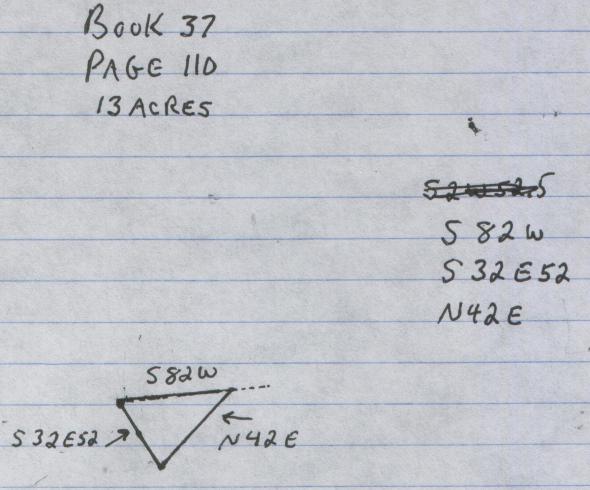 BOOK 37
PAGE 110
13 ACRES
S 82 W
S 32 E 52
N42 E
S 82 W
S 32 E 52
N 42 E